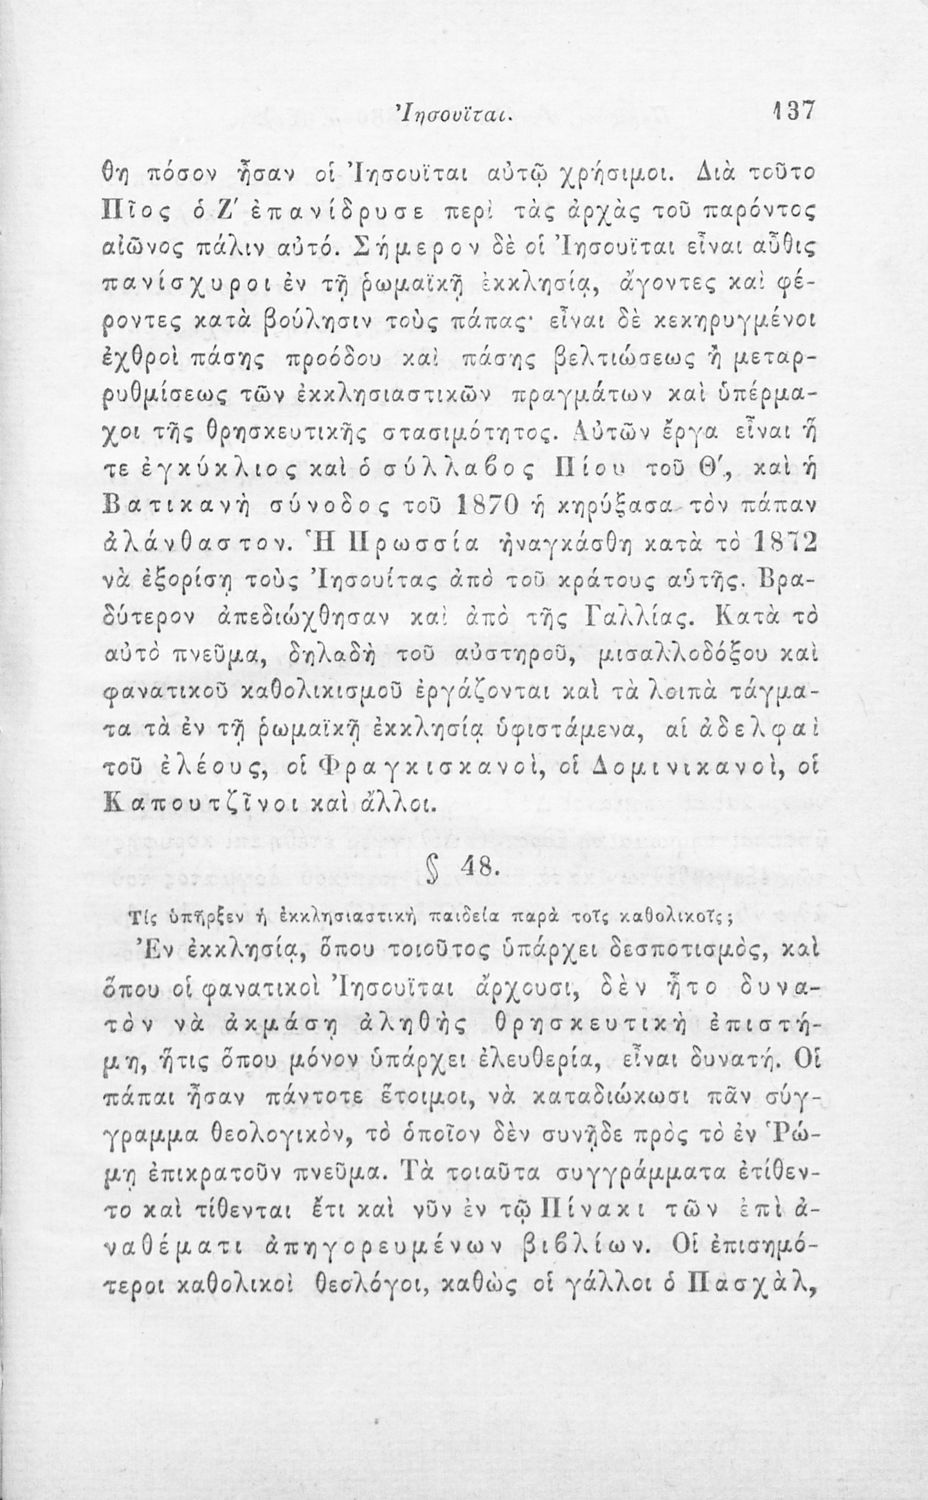 Ἰησουῖται. 137
θη πόσον ἦσαν οἱ Ἰησουῖται αὐτῷ χρήσιμοι. Διὰ τοῦτο
Πῖος ὁ Ζ′ ἐπανίδρυσε περὶ τὰς ἀρχὰς τοῦ παρόντος
αἰῶνος πάλιν αὐτό. Σήμερον δὲ οἱ Ἰησουῖται εἶναι αὖθις
πανίσχυροι ἐν τῇ ῥωμαϊκῇ ἐκκλησίᾳ, ἄγοντες καὶ φέ-
ροντες κατὰ βούλησιν τοὺς πάπας· εἶναι δὲ κεκηρυγμένοι
ἐχθροὶ πάσης προόδου καὶ πάσης βελτιώσεως ἢ μεταρ-
ρυθμίσεως τῶν ἐκκλησιαστικῶν πραγμάτων καὶ ὑπέρμα-
χοι τῆς θρησκευτικῆς στασιμότητος. Αὐτῶν ἔργα εἶναι ἥ
τε ἐγκύκλιος καὶ ὁ σύλλαβος Πίου τοῦ Θ′, καὶ ἡ
Βατικανὴ σύνοδος τοῦ 1870 ἡ κηρύξασα τὸν πάπαν
ἀλάνθαστον. Ἡ Πρωσσία ἠναγκάσθη κατὰ τὸ 1872
νὰ ἐξορίσῃ τοὺς Ἰησουίτας ἀπὸ τοῦ κράτους αὑτῆς. Βρα-
δύτερον ἀπεδιώχθησαν καὶ ἀπὸ τῆς Γαλλίας. Κατὰ τὸ
αὐτὸ πνεῦμα, δηλαδὴ τοῦ αὐστηροῦ, μισαλλοδόξου καὶ
φανατικοῦ καθολικισμοῦ ἐργάζονται καὶ τὰ λοιπὰ τάγμα-
τα τὰ ἐν τῇ ῥωμαϊκῇ ἐκκλησίᾳ ὑφιστάμενα, αἱ ἀδελφαὶ
τοῦ ἐλέους, οἱ Φραγκισκανοὶ, οἱ Δομινικανοὶ, οἱ
Καπουτζῖνοι καὶ ἄλλοι.
§ 48.
Τίς ὑπῆρξεν ἡ ἐκκλησιαστικὴ παιδεία παρὰ τοῖς καθολικοῖς;
Ἐν ἐκκλησίᾳ, ὅπου τοιοῦτος ὑπάρχει δεσποτισμὸς, καὶ
ὅπου οἱ φανατικοὶ Ἰησουῖται ἄρχουσι, δὲν ἦτο δυνα-
τὸν νὰ ἀκμάσῃ ἀληθὴς θρησκευτικὴ ἐπιστή-
μη, ἥτις ὅπου μόνον ὑπάρχει ἐλευθερία, εἶναι δυνατή. Οἱ
πάπαι ἦσαν πάντοτε ἕτοιμοι, νὰ καταδιώκωσι πᾶν σύγ-
γραμμα θεολογικὸν, τὸ ὁποῖον δὲν συνῇδε πρὸς τὸ ἐν Ῥώ-
μῃ ἐπικρατοῦν πνεῦμα. Τὰ τοιαῦτα συγγράμματα ἐτίθεν-
το καὶ τίθενται ἔτι καὶ νῦν ἐν τῷ Πίνακι τῶν ἐπὶ ἀ-
ναθέματι ἀπηγορευμένων βιβλίων. Οἱ ἐπισημό-
τεροι καθολικοὶ θεολόγοι, καθὼς οἱ γάλλοι ὁ Πασχὰλ,